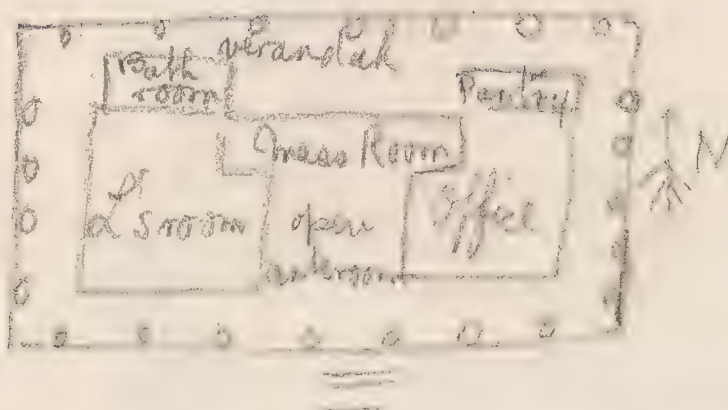 verandah
Bath
room
Pantry
Mess Room
N
L's room
open
Office